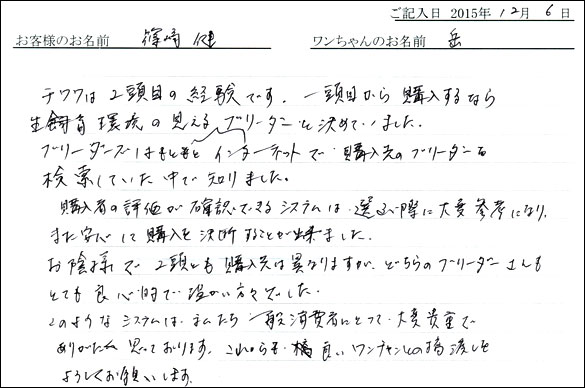 ご記入日 2015年12月6日
お客様のお名前 篠崎 健 ワンちゃんのお名前 岳
チワワは2頭目の経験です。一頭目から購入するなら
生飼育環境の見えるブリーダーと決めていました。
ブリーダーズはもともとインターネットで購入先のブリーダーを
検索していた中で知りました。
購入者の評価が確認できるシステムは選ぶ際に大変参考になり、
また安心して購入を決断することが出来ました。
お陰様で2頭とも購入先は異なりますが、どちらのブリーダーさんも
とても良心的で温かい方々でした。
このようなシステムは、私たち一般消費者にとって大変貴重で
ありがたく思っております。これからも良いワンチャンとの橋渡しを
よろしくお願いします。